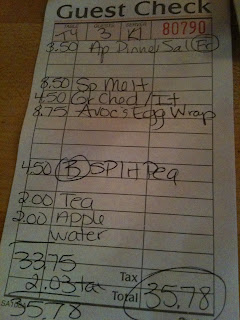 Guest Check
T4 3 K1 80790
3.50 Ap Dinner Sal
8.50 Sp Melt
4.50 Gr Ched / It
8.75 Avoc's Egg Wrap
4.50 B Split Pea
2.00 Tea
2.00 Apple
water
33.75
Tax
2.03 tax
Total 35.78
35.78